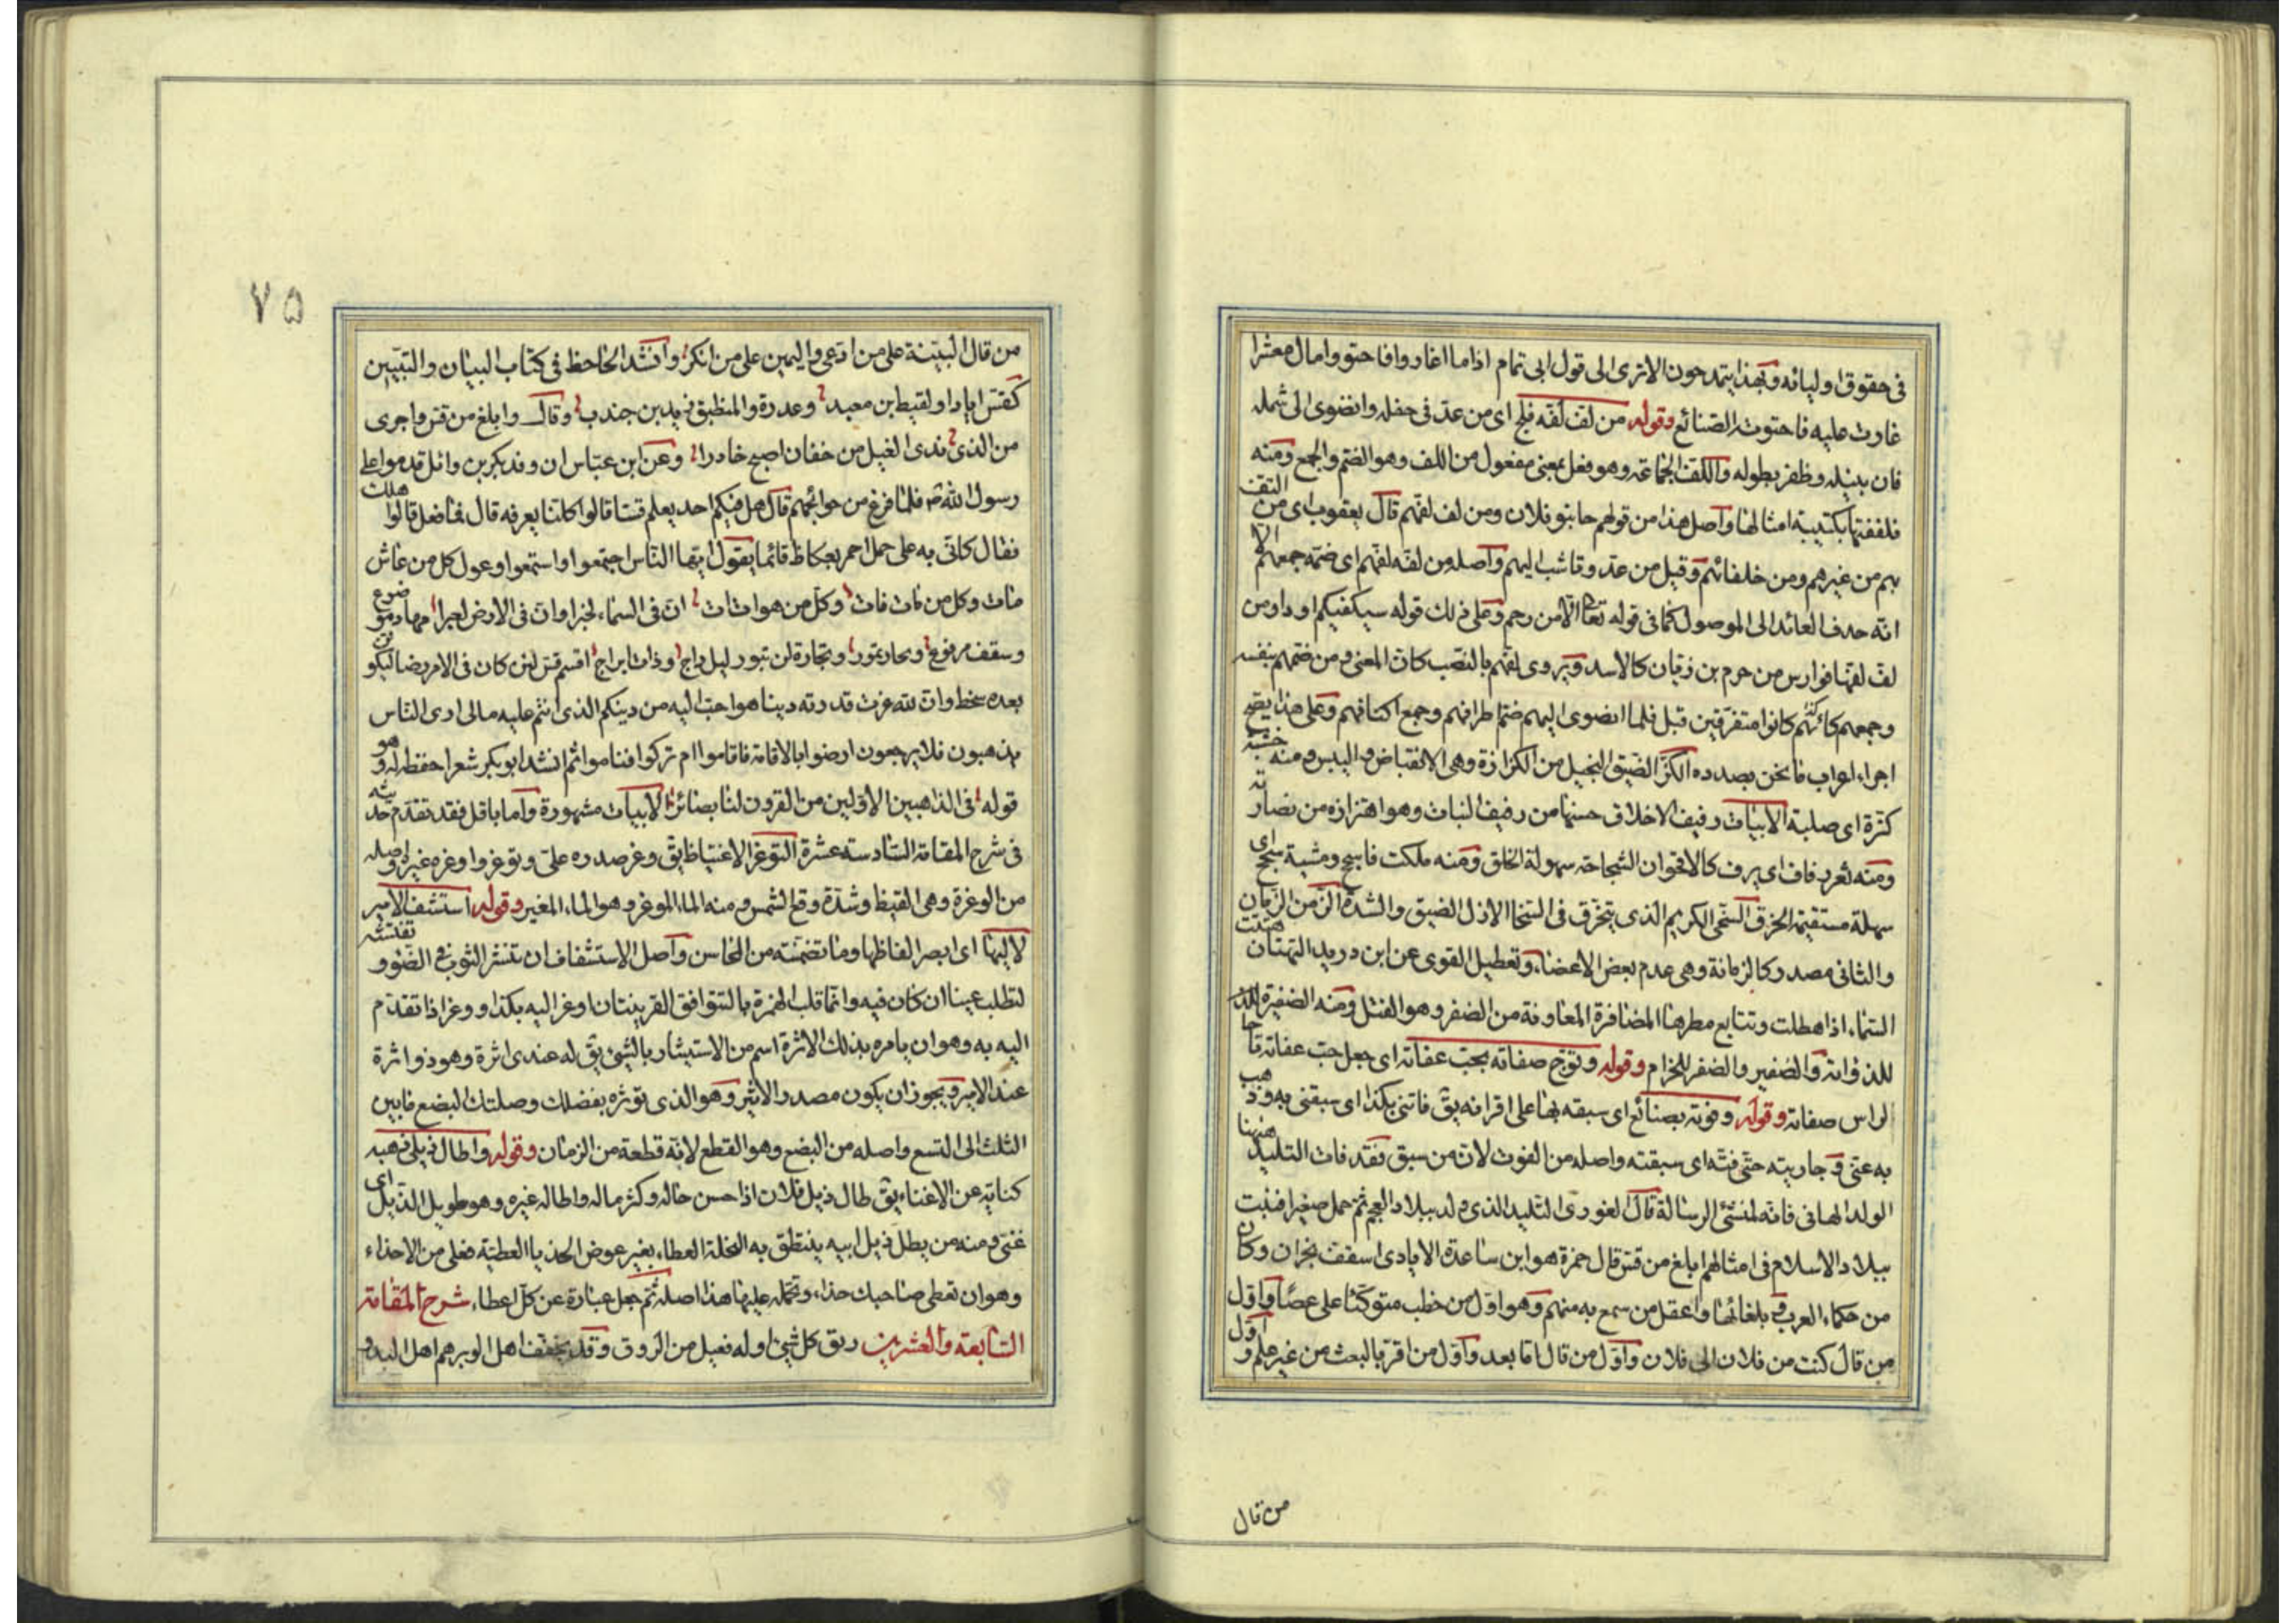 فى حقوق اوليائه وبهذا يتمدحون الا ترى الى قول ابى تمام اذا ما اغاروا فاحتووا مال معشرا
غارت عليه فاحتوته الصنائع وقوله من لف لفه فلج اى من عدّ فى حفله وانضوى الى شمله
فان بنيله وظفر بطوله واللف الجماعة وهو فعل بمعنى مفعول من اللف وهو الضم والجمع ومنه
فلففتها بكتيبة امثالها واصل هذا من قولهم جا بنو فلان ومن لف لفهم قال يعقوب اى من التف
بهم من غيرهم ومن خلفائهم وقيل من عدّ وقاشب اليهم واصله من لفه لفهم اى ضمه جمعهم الا
انه حذف العائد الى الموصول كما فى قوله تعا الا من رحم وعلى ذلك قوله سيكفيكم اوداومن
لف لفها فوارس من جرم بن زبان كالاسد ويروى لفهم بالنصب كان المعنى ومن ضمهم بنفسه
وجمعهم كانهم كانوا متفرقين قبل فلما انضوى اليهم ضم اطرافهم وجمع اكنافهم وعلى هذا يصح
اجراء اعراب ما نحن بصدده الكز الضيق البخيل من الكزازة وهى الانقباض واليبس ومنه خشبة
كزة اى صلبة الابيات رفيف الاخلاق حسنها من رفيف النبات وهو اهتزازه من نضارته
ومنه ثغر رفاف اى يرف كالاقحوان السجاحة سهولة الخلق ومنه ملكت فاسجح ومشية سجح اى
سهلة مستقيمة الخرق السخى الكريم الذى يتخرق فى السخا الازل الضيق والشدة الزمن الزمان
والثانى مصدر كالزمانة وهى عدم بعض الاعضاء وتعطيل القوى عن ابن دريد التهتان هتنت
السماء اذا هطلت وتتابع مطرها المضافرة المعاونة من الضفر وهو الفتل ومنه الضفيرة للذ
للذوابة والضفير والضفر للحزام وقوله وتوج صفاته بحب عفاته اى جعل حب عفاته تاجا
لراس صفاته وقوله وفوته بصنائع اى سبقه بها على اقرانه يق فاتنى بكذا اى سبقنى به وذهب
به عنى وجاريته حتى فته اى سبقته واصله من الفوت لان من سبق فقد فات التليد ههنا
الولد الهانى فانه لمنشئ الرسالة قال الغورى التليد الذى ولد ببلاد العجم ثم حمل صغيرا فنبت
ببلاد الاسلام فى امثالهم ابلغ من قس قال حمزة هو ابن ساعدة الايادى اسقف نجران وكان
من حكماء العرب وبلغائها واعقل من سمع به منهم وهو اول من خطب متوكئا على عصا واول
من قال كتب من فلان الى فلان واول من قال اما بعد واول من اقر بالبعث من غير علم واول
من قال
٧۵
من قال البيّنة على من ادّعى واليمين على من انكر وانشد الجاحظ فى كتاب البيان والتبيين
كقس اياد او لقيط بن معبد وعذرة والمنطيق زيد بن جندب وقال وابلغ من قس واجرى
من الذى بذى الغيل من خفان اصبح خادرا وعن ابن عباس ان وفد بكر بن وائل قدموا على
رسول الله ص فلما فرغ من حوائجهم قال هل فيكم احد يعلم قسا قالوا كلنا يعرفه قال فما فعل قالوا هلك
فقال كانى به على جمل احمر بعكاظ قائما يقول ايها الناس اجتمعوا واستمعوا وعوا كل من عاش
مات وكل من مات فات وكل من هو ات ات ان فى السماء لخبرا وان فى الارض لعبرا مهاد موضوع
وسقف مرفوع وبحار تمور وتجارة لن تبور ليل داج وذات ابراج اقسم قس لئن كان فى الامر رضا ليكونن
بعده سخط وان لله عزت قدرته دينا هو احب اليه من دينكم الذى انتم عليه مالى ارى الناس
يذهبون فلا يرجعون ارضوا بالاقامة فاقاموا ام تركوا فناموا ثم انشد ابو بكر شعرا حفظه له وهو
قوله فى الذاهبين الاولين من القرون لنا بصائر الابيات مشهورة واما باقل فقد تقدم حديثه
فى شرح المقامة السادسة عشرة التوغر الاغتياظ يق وغر صدره على وتوغر واوغره غيره واصله
من الوغرة وهى القيظ وشدة وقع الشمس ومنه الماء الموغر وهو الماء المغير وقوله استشف الامير
لاليها اى ابصر الفاظها وما تضمنته من المحاسن واصل الاستشفاف ان تنشر الثوب فى الضوء وتفتشه
لتطلب عيبا ان كان فيه وانما قلب الهمزة يا لتتوافق القرينتان اوغر اليه بكذا ووغر اذا تقدم
اليه به وهو ان يامره بذلك الاثرة اسم من الاستيثار بالشئ يق له عندى اثرة وهو ذو اثرة
عند الامير ويجوز ان يكون مصدر الاثير وهو الذى تؤثره بفضلك وصلتك البضع ما بين
الثلث الى التسع واصله من البضع وهو القطع لانه قطعة من الزمان وقوله واطال ذيلى ذهبه
كناية عن الاغناء يق طال ذيل فلان اذا حسن حاله وكثر ماله واطاله غيره وهو طويل الذيل اى
غنى ومنه من يطل ذيل ابيه ينتطق به النحلة العطاء بغير عوض الحذيا العطية فعلى من الاحذاء
وهو ان تعطى صاحبك حذاء وتحمله عليها هذا اصله ثم جعل عبارة عن كل اعطاء شرح المقامة
السابعة والعشرين ريق كل شئ اوله فيعل من الروق وقد يخفف اهل الوبر هم اهل البدو